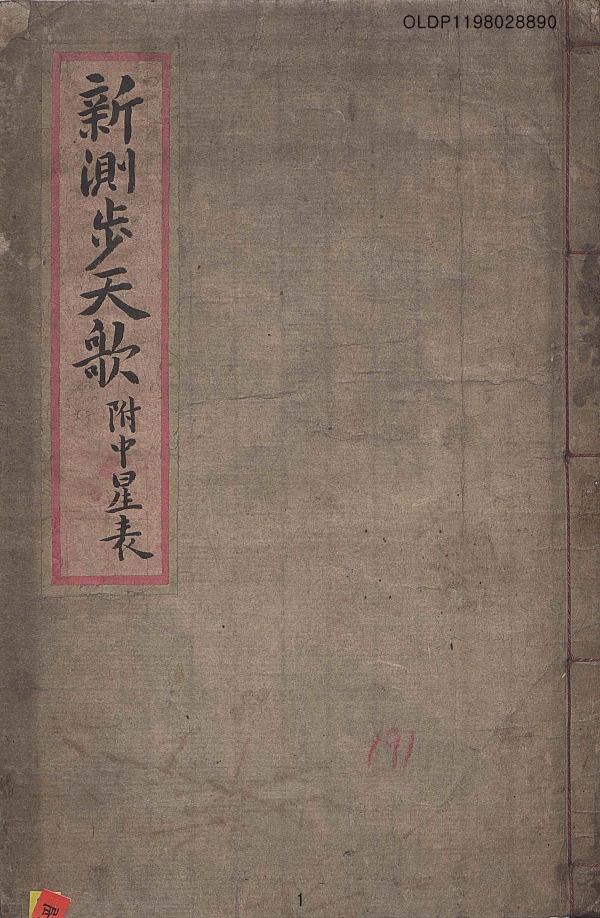 OLDP1198028890
新測步天歌
附中星表
191
1